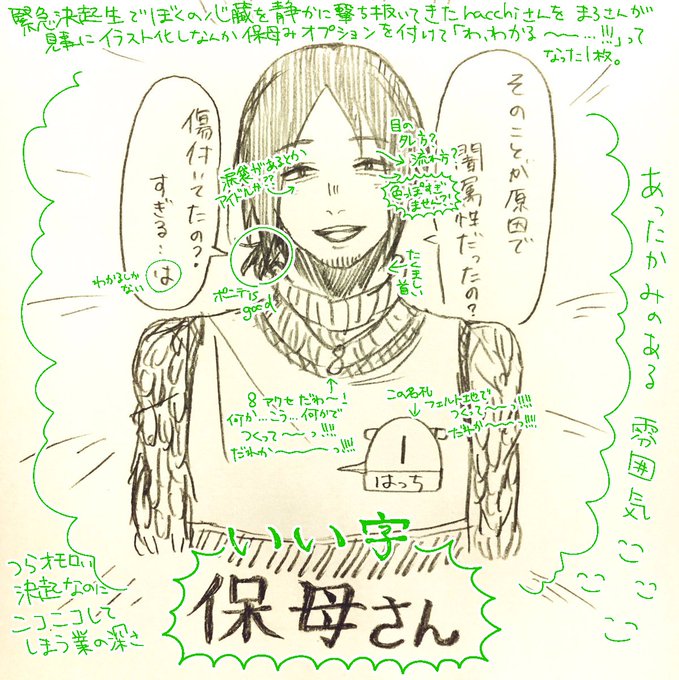 緊急決起生でぼくの心臓を静かに撃ち抜いてきたhacchiさんを まろさんが
見事にイラスト化しなんか保母みオプションを付けて「わ、わかる〜〜…!!!」って
なった1枚。
そのことが原因で
闇属性だったの?
傷付いてたの?
すぎる…は
わかるしかない
目の
タレ方?
流れ方?
色っぽすぎ
ませんー?!
涙袋があるとか
アイドルか??
ポニテis
good
たくましい
首
8アクセだわ〜!
何か…こう…何かで
つくって〜〜っ!!!!
だれか〜〜〜っ!!!!
この名札
フェルト地で
つくって〜〜!!!!
だれか〜〜っ!!!!
1
はっち
あったかみのある 雰囲気
ニコ
ニコ
いい字
保母さん
つらオモロい
決起なのに
ニコニコして
しまう業の深さ